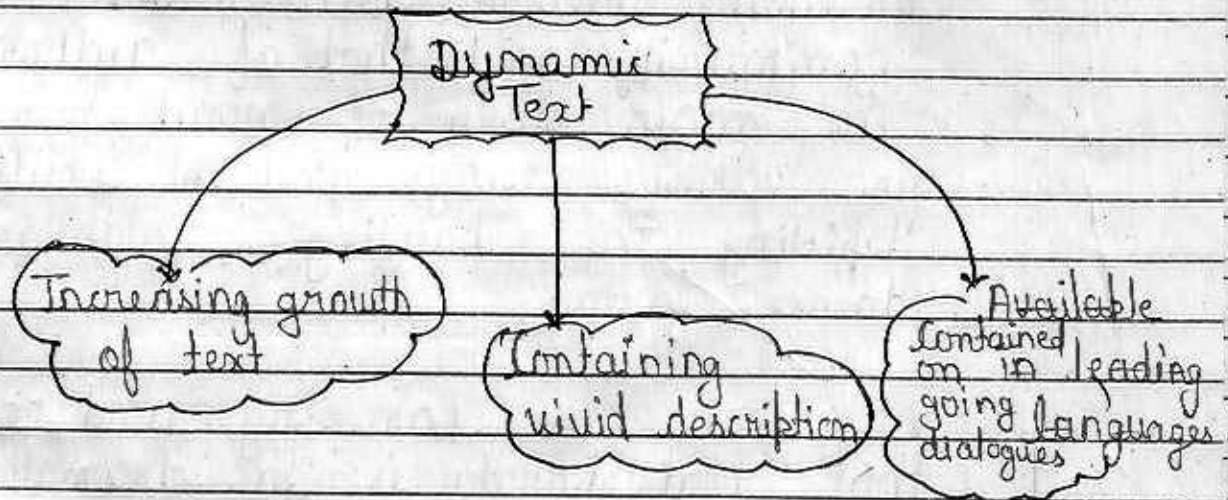 Dynamic
Text
Increasing growth
of text
Containing
vivid description
Available
Contained
on in leading
going languages
dialogues